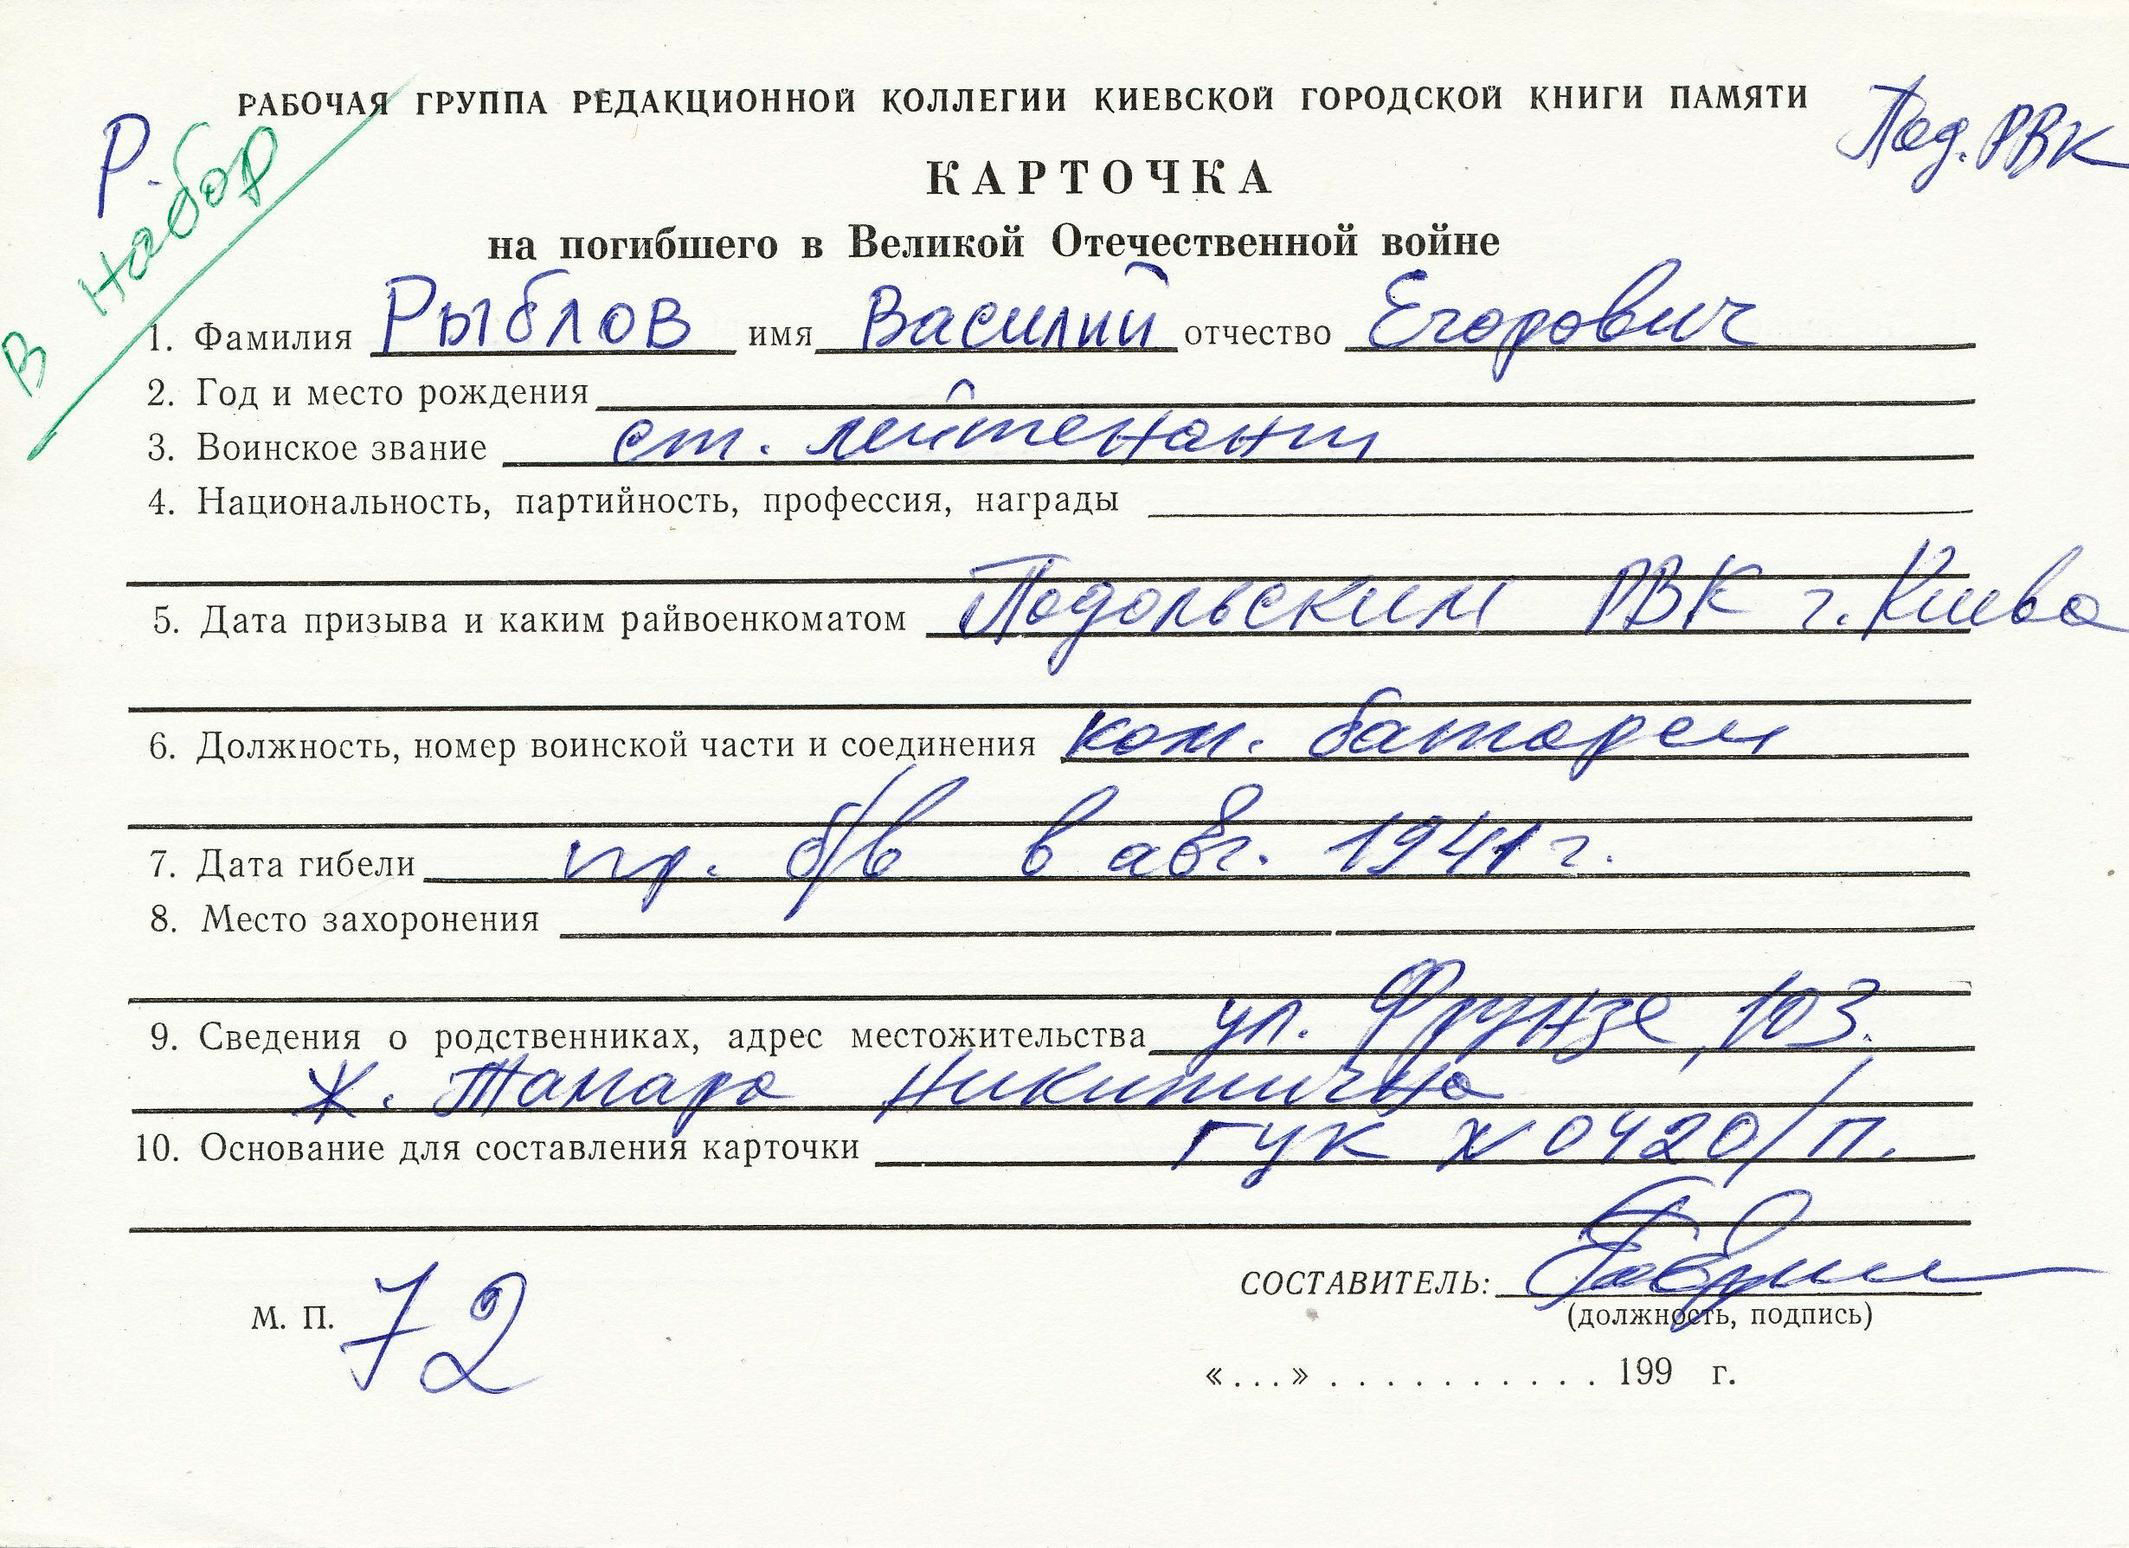 РАБОЧАЯ ГРУППА РЕДАКЦИОННОЙ КОЛЛЕГИИ КИЕВСКОЙ ГОРОДСКОЙ КНИГИ ПАМЯТИ
Р.
Под. РВК
В набор
КАРТОЧКА
на погибшего в Великой Отечественной войне
1. Фамилия Рыблов имя Василий отчество Егорович
2. Год и место рождения
3. Воинское звание ст. лейтенант
4. Национальность, партийность, профессия, награды
5. Дата призыва и каким райвоенкоматом Подольским РВК г. Киева
6. Должность, номер воинской части и соединения ком. батареи
7. Дата гибели пр. б/в в авг. 1941 г.
8. Место захоронения
9. Сведения о родственниках, адрес местожительства ул. Фрунзе, 103.
Ж. Тамара Никитична
10. Основание для составления карточки ГУК х 0420/п.
СОСТАВИТЕЛЬ:
М. П. 72
(должность, подпись)
«...» . . . . . . . . . . . 199 г.